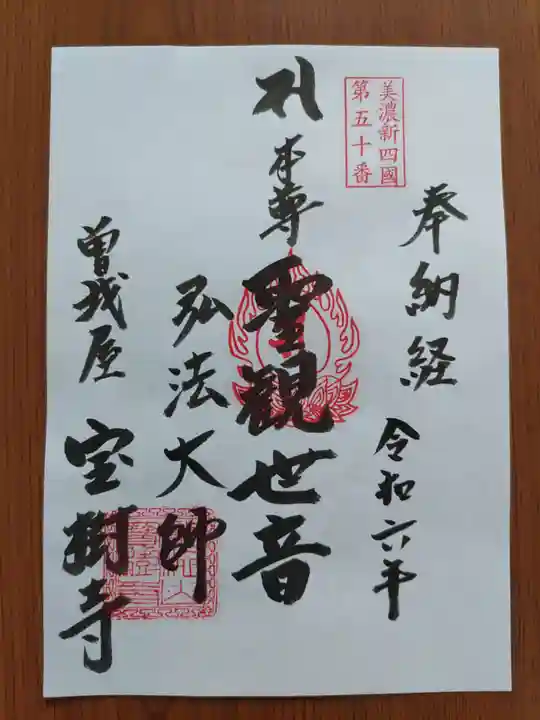 美濃新四國
第五十番
奉納経
令和六年
札 本尊 聖観世音
弘法大師
曽我屋 宝樹寺